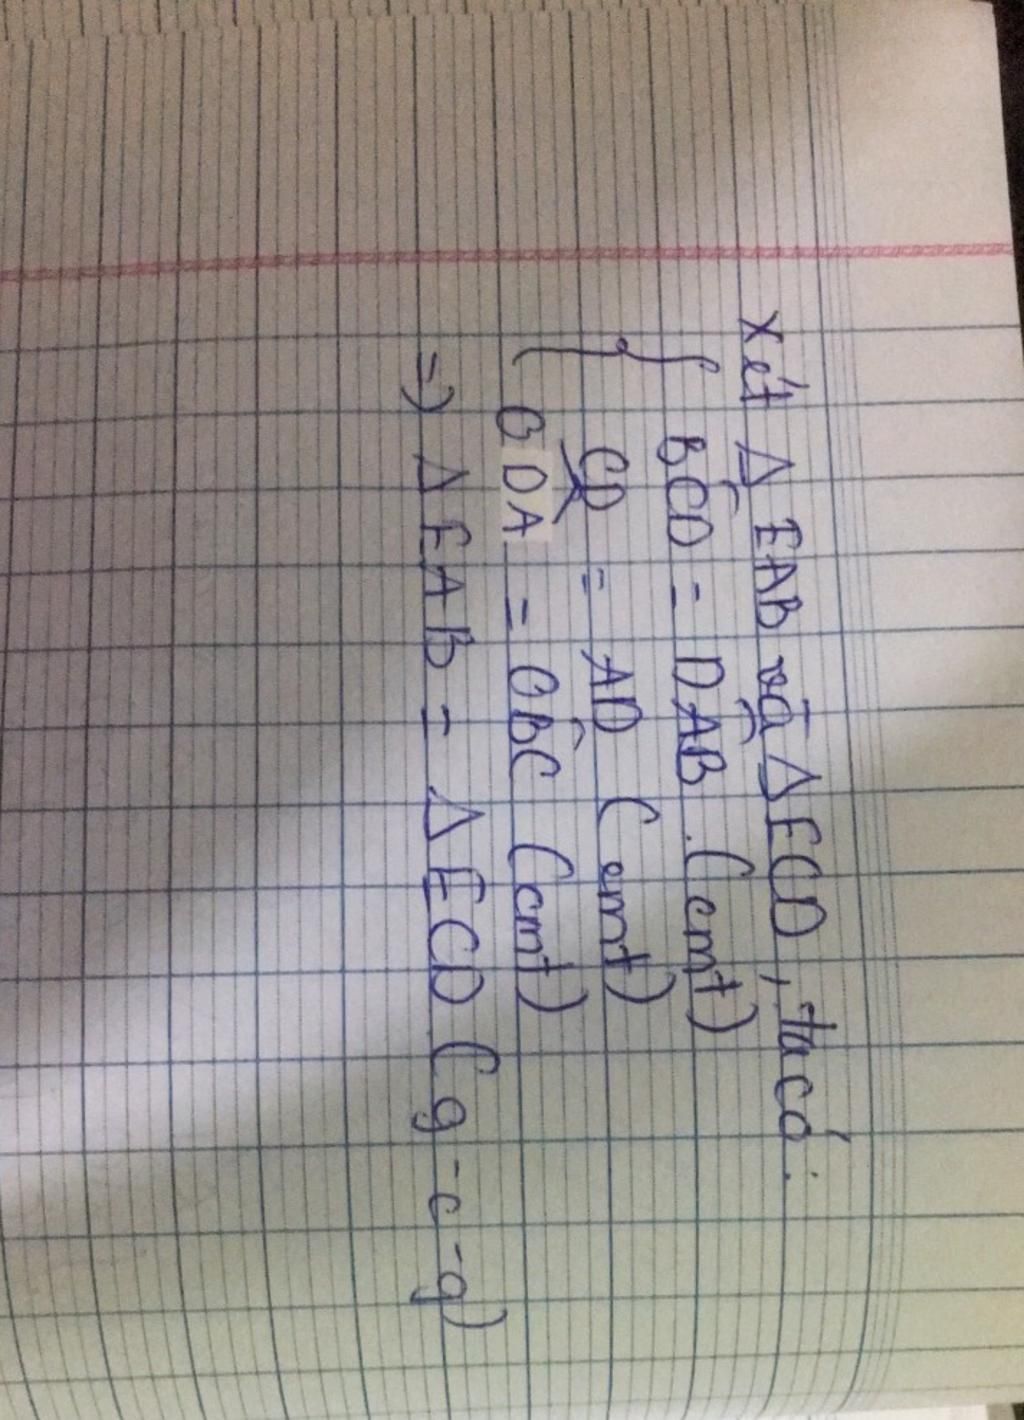 Xét Δ EAB và Δ ECD, ta có:
{ BĈD = DÂB (cmt)
CD = AD (cmt)
ODA = OB̂C (cmt)
=) Δ EAB = Δ ECD (g-c-g)